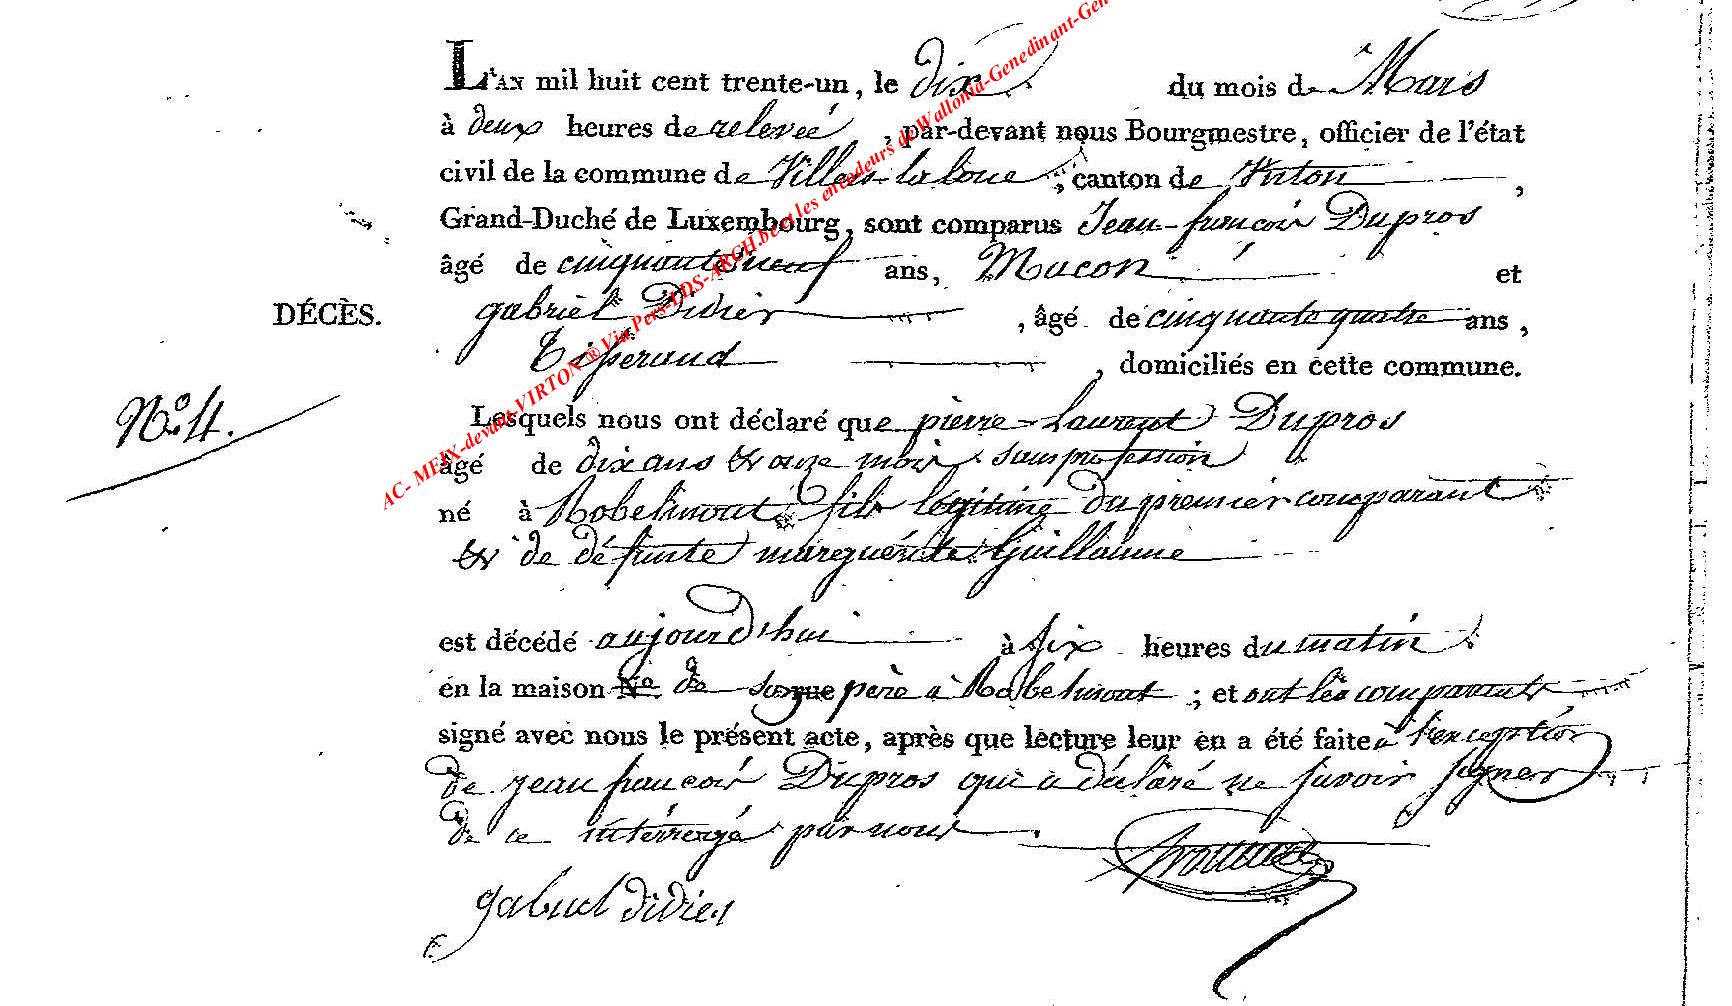 L'AN mil huit cent trente-un, le dix du mois de Mars
à deux heures de relevée, par-devant nous Bourgmestre, officier de l'état
civil de la commune de Villers-la loue, canton de Virton,
Grand-Duché de Luxembourg, sont comparus Jean-françois Dupros
âgé de cinquante neuf ans, Macon et
DÉCÈS.
gabriel Didier, âgé de cinquante quatre ans,
Tisserand, domiciliés en cette commune.
N.o 4.
Lesquels nous ont déclaré que pierre-Laurent Dupros
âgé de dix ans & onze mois sans profession
né à Robelmont fils légitime du premier comparant
& de défunte marguérite Guillaume
est décédé aujourd'hui à six heures du matin
en la maison No. de son père à Robelmont; et ont les comparants
signé avec nous le présent acte, après que lecture leur en a été faite à l'exception
de jean françois Dupros qui a déclaré ne savoir signer
de ce intérrogé par nous.
gabriel didier
AC- MEIX-devant-VIRTON ® Via Pers-LDS-ARGH.be et les encodeurs de Wallonia-Genedinant-Gen